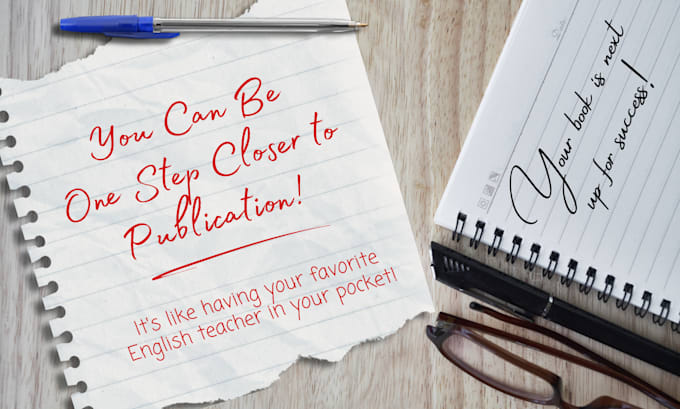 You Can Be
One Step Closer to
Publication!
It's like having your favorite
English teacher in your pocket!
Your book is next
up for success!